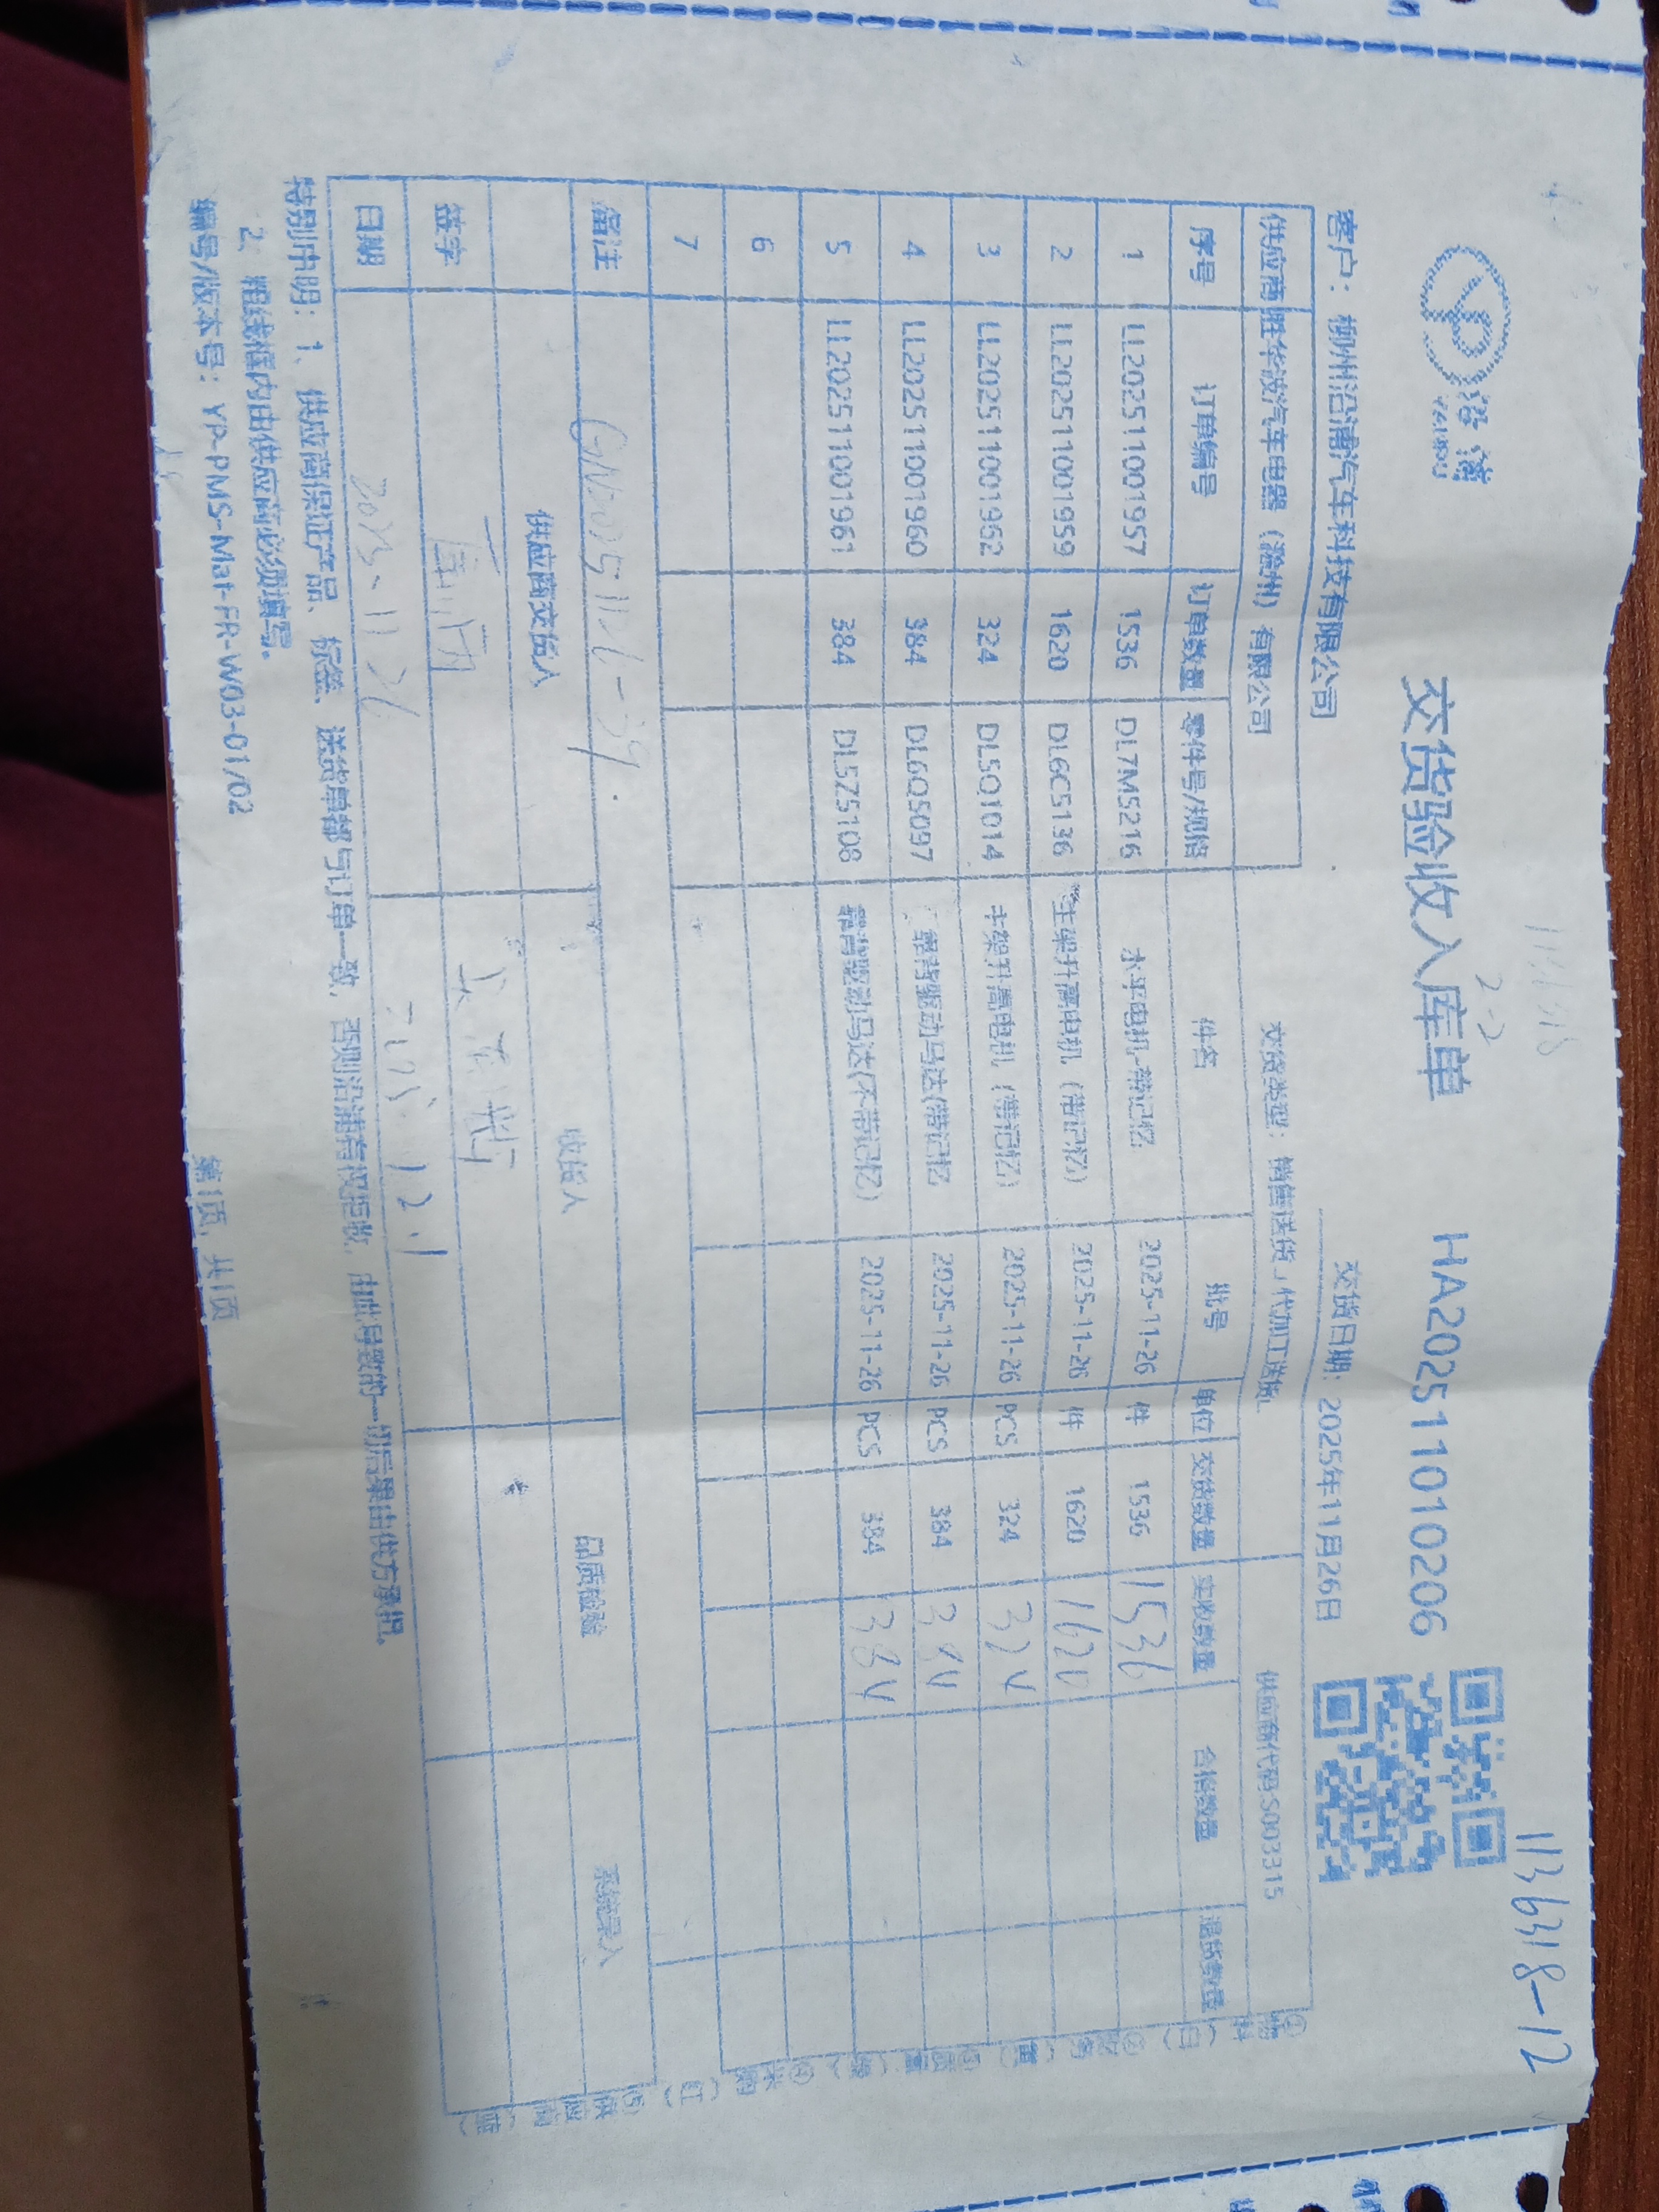 沿浦
YANPU
交货验收入库单
HA20251101020​6
1136318-12
2-2
客户：柳州沿浦汽车科技有限公司
交货日期：2025年11月26日
供应商 胜华波汽车电器（滁州）有限公司 交货类型：销售送货、代加工送货 供应商代码:S003315
序号 订单编号 订单数量 零件号/规格 件名 批号 单位 交货数量 实收数量 合格数量 退货数量
1 LL202511001957 1536 DL7M5216 水平电机-带记忆 2025-11-26 件 1536 1536
2 LL202511001959 1620 DL6C5136 主架升高电机（带记忆） 2025-11-26 件 1620 1620
3 LL202511001962 324 DL5Q1014 主架升高电机（带记忆） 2025-11-26 PCS 324 324
4 LL202511001960 384 DL6Q5097 靠背驱动马达(带记忆 2025-11-26 PCS 384 384
5 LL202511001961 384 DL5Z5108 靠背驱动马达(不带记忆) 2025-11-26 PCS 384 384
6
7
备注
供应商交货人 收货人 品质检验 系统录入
签字
日期 2025.11.26 2025.12.1
特别申明：1、供应商保证产品、标签、送货单都与订单一致，否则沿浦有权拒收，由此导致的一切后果由供方承担。
2、粗线框内由供应商必须填写。
编号/版本号：YP-PMS-Mat-FR-W03-01/02
第1页，共1页